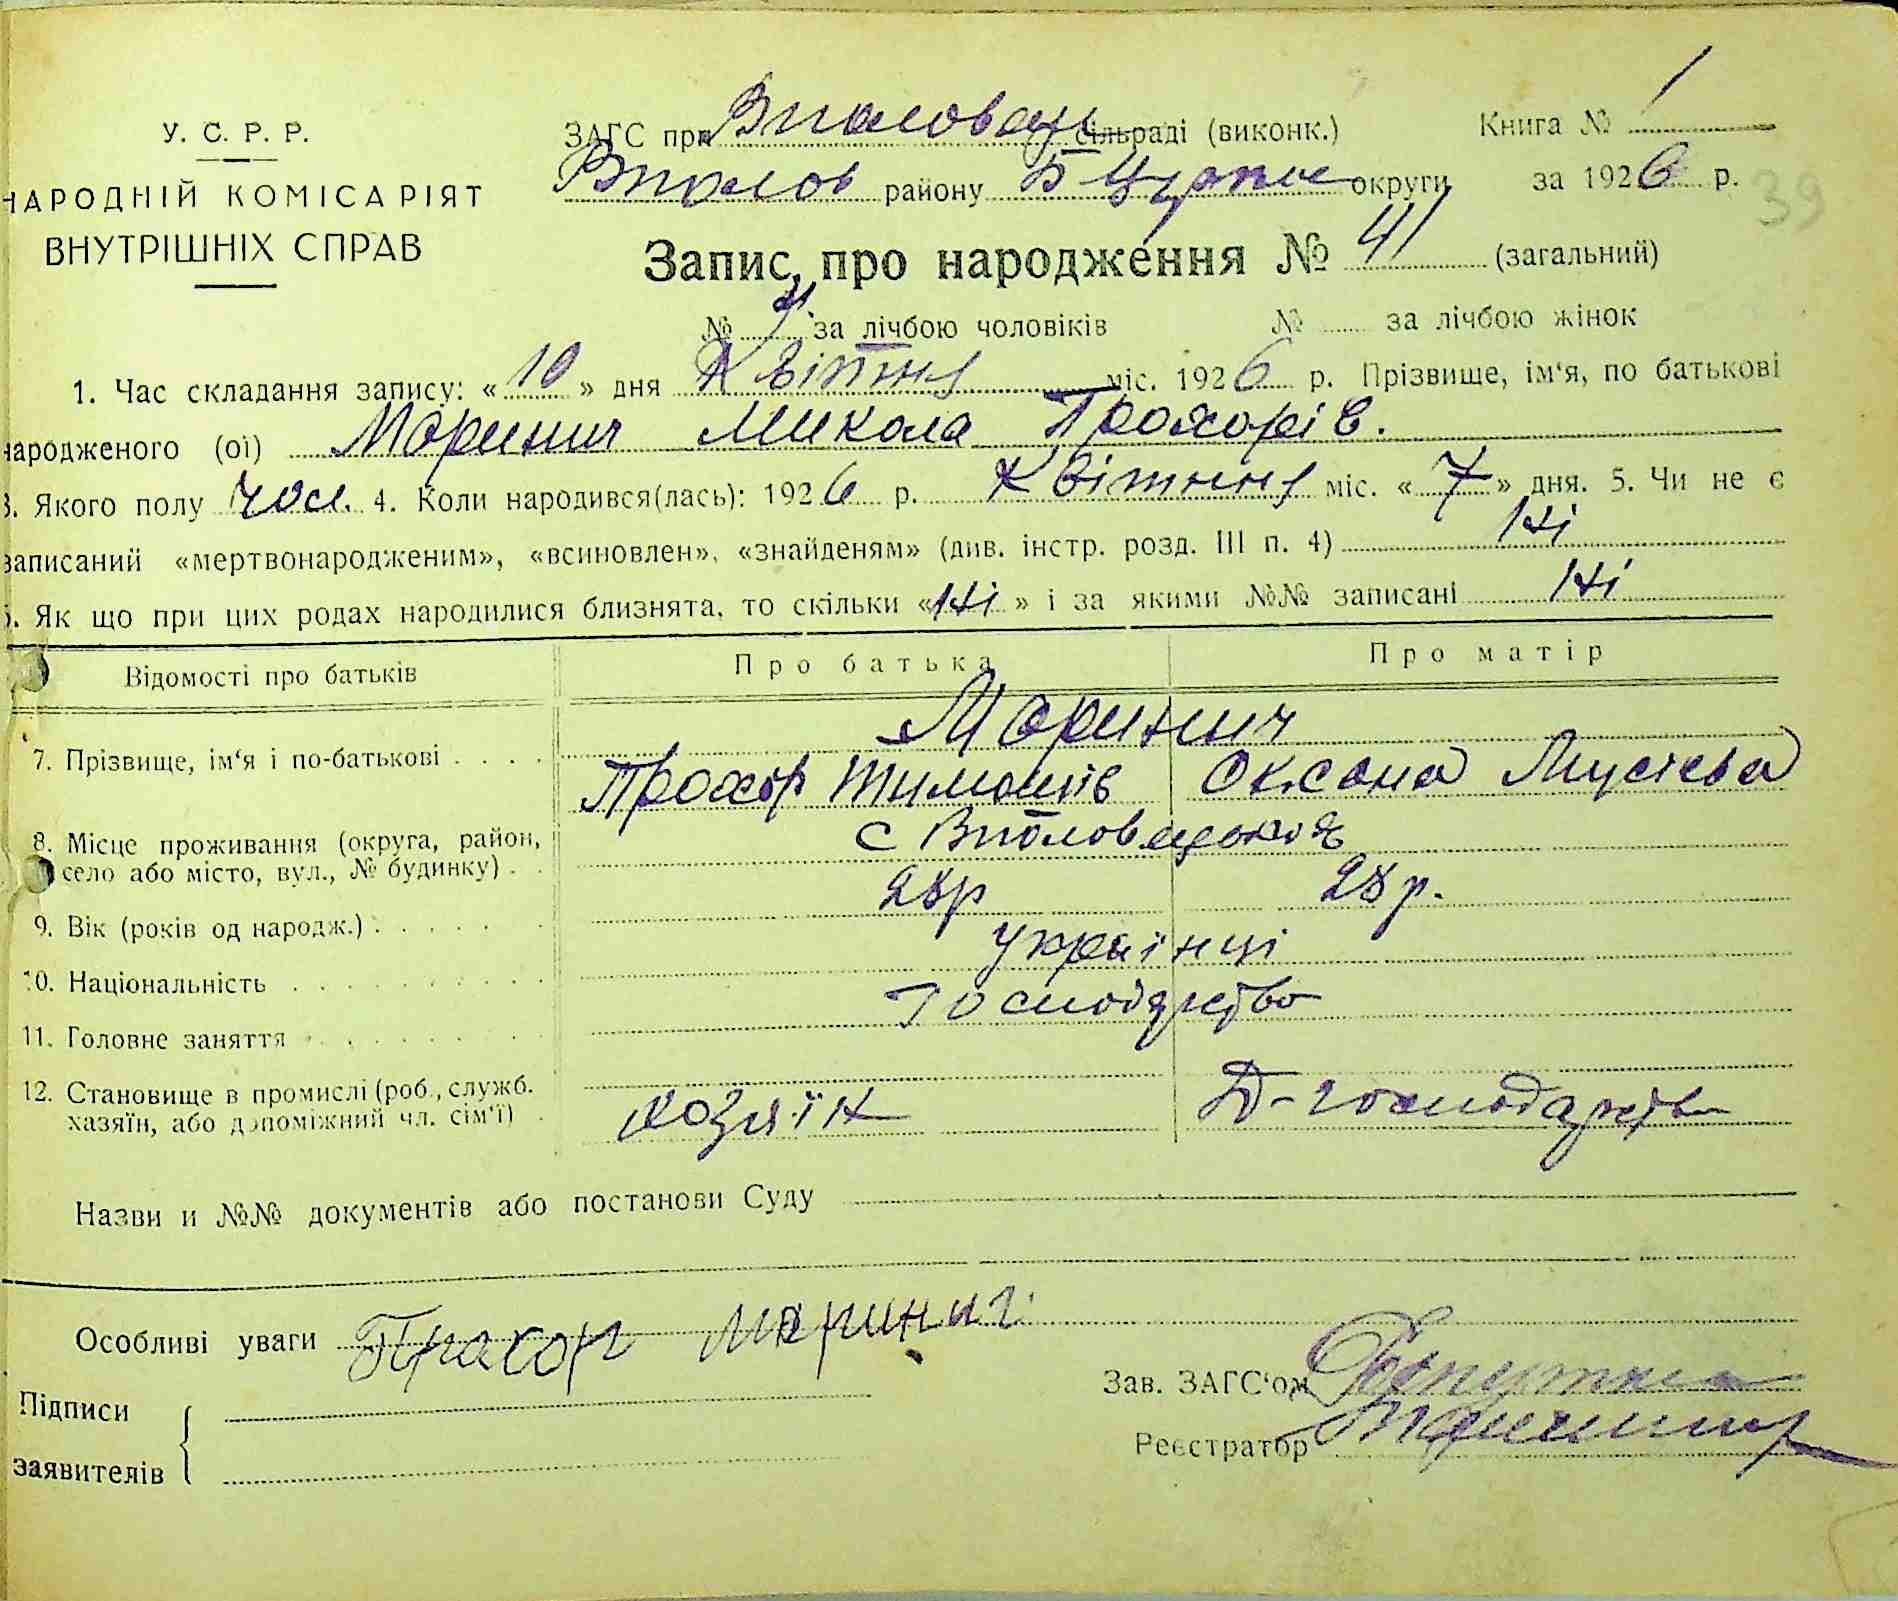 У. С. Р. Р.
НАРОДНІЙ КОМІСАРІЯТ
ВНУТРІШНІХ СПРАВ
ЗАГС при Вполовец сільраді (виконк.) Книга № 1
Вполов району БЦеркив округи за 1926 р.
39
Запис про народження № 41 (загальний)
№ за лічбою чоловіків № за лічбою жінок
1. Час складання запису: «10» дня Квітня міс. 1926 р. Прізвище, ім'я, по батькові
народженого (ої) Маринич Микола Прохорів.
3. Якого полу чол. 4. Коли народився(лась): 1926 р. Квітння міс. «7» дня. 5. Чи не є
записаний «мертвонародженим», «всиновлен», «знайденям» (див. інстр. розд. III п. 4) Ні
6. Як що при цих родах народилися близнята, то скільки «Ні» і за якими №№ записані Ні
Відомості про батьків Про батька Про матір
7. Прізвище, ім'я і по-батькові . . . . Маринич
Прохор Тимошів Оксана Мусієва
8. Місце проживання (округа, район,
село або місто, вул., № будинку) . . с Вполовецькоя
9. Вік (років од народж.) . . . . . 28р 28р.
10. Національність . . . . . . . . українці
11. Головне заняття . . . . . . . . Господарство
12. Становище в промислі (роб., служб.
хазяїн, або допоміжний чл. сім'ї) . хозяїн Д-господарств
Назви и №№ документів або постанови Суду
Особливі уваги Прахор Маринич
Підписи
заявителів
Зав. ЗАГС'ом
Реєстратор